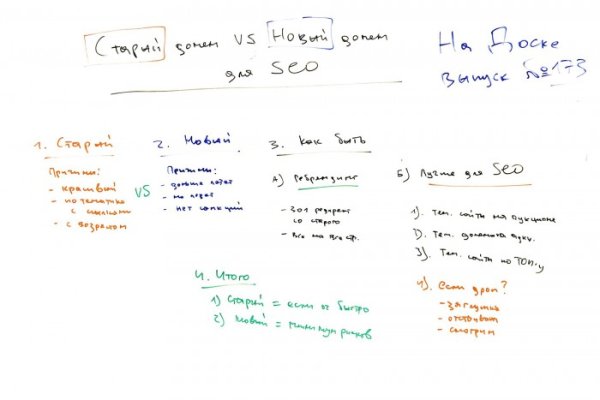 Старый домен VS Новый домен
для SEO
На Доске
выпуск №173
1. Старый
Причины:
- красивый
- по тематике
с ссылками
- с возрастом
VS
2. Новый
Причины:
- дольше
- не
- нет санкций
3. Как быть
А) Ребрендинг
- 301 редирект
со старого
- Все на все стр.
Б) Лучше для SEO
1). Тем. сайты на аукционе
2). Тем. домены аукц.
3). Тем. сайты по ТОПу
4). если дроп?
- заглушка
- отстаивать
- смотрим
4. Итого
1) Старый = если оч быстро
2) Новый = минимум рисков